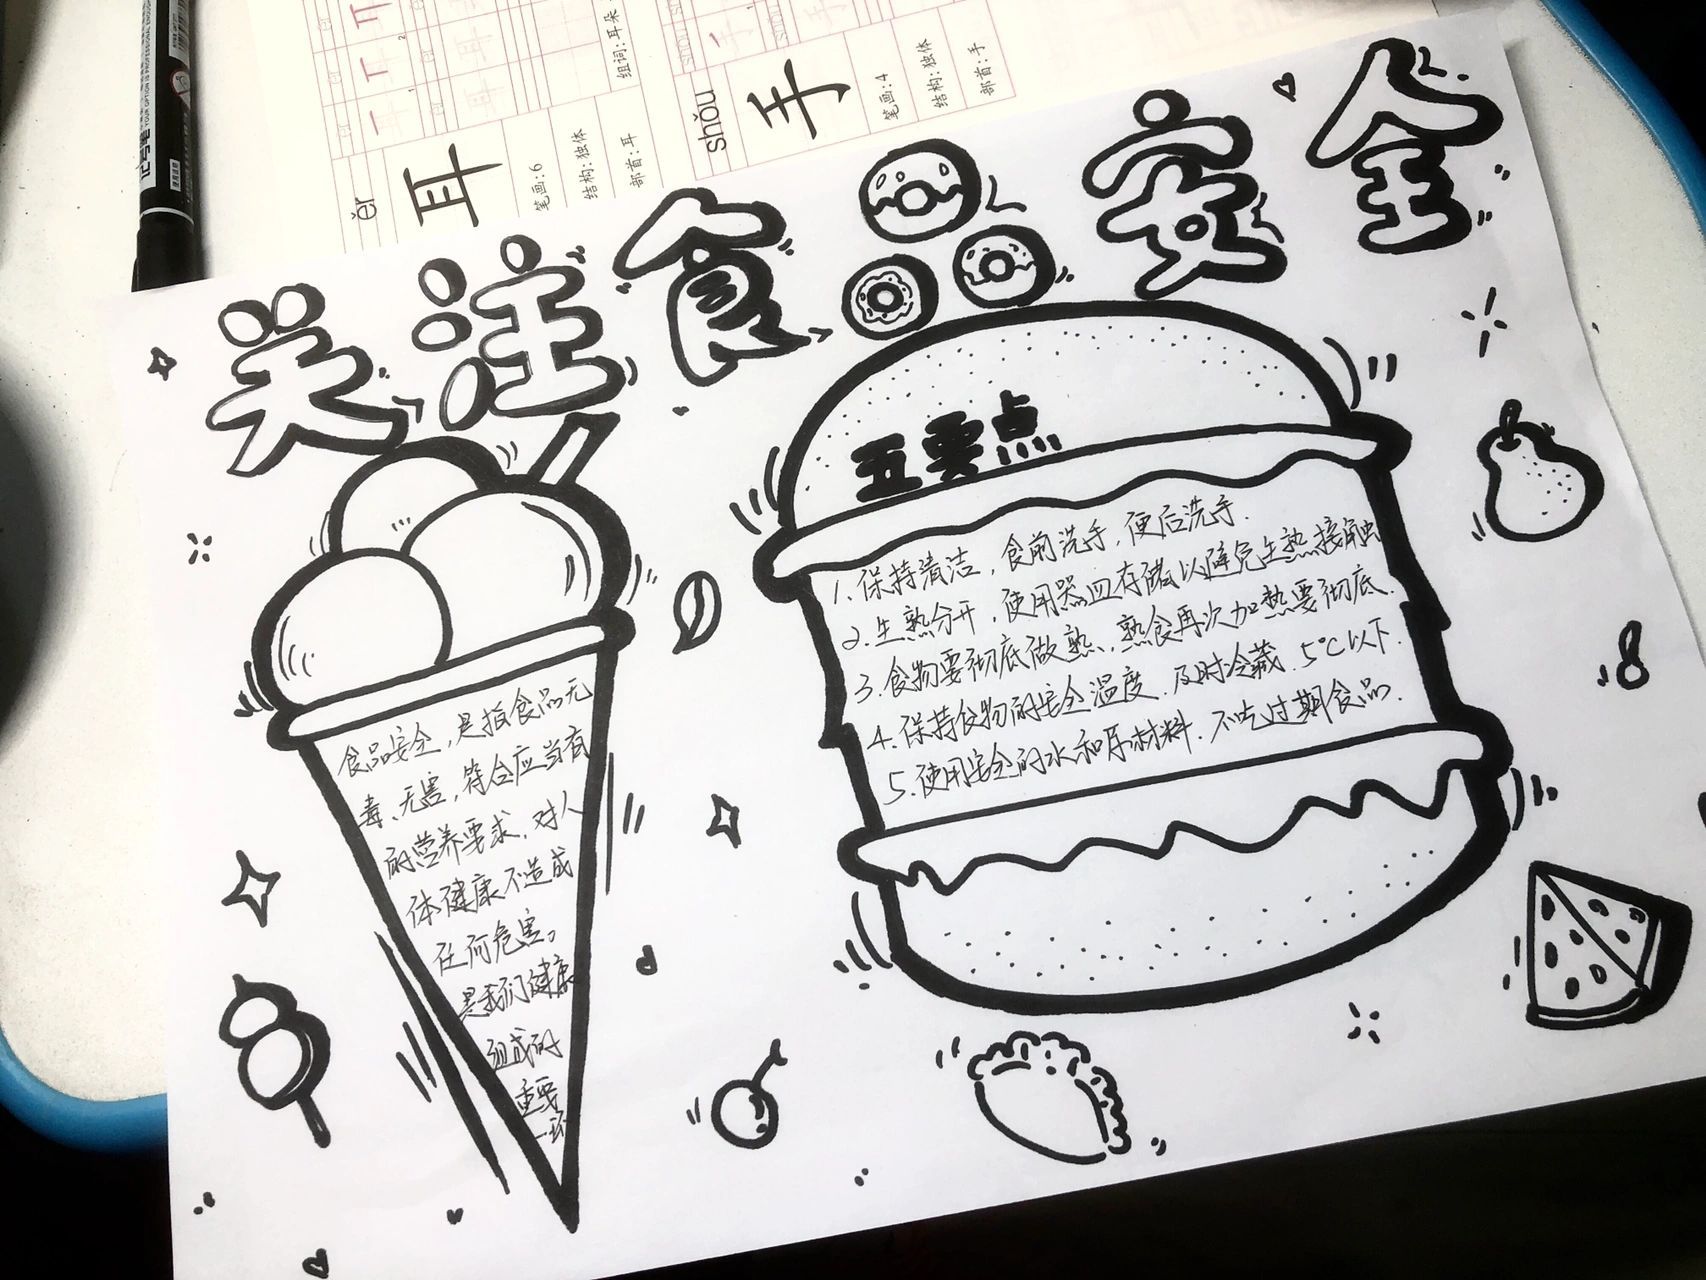 耳
耳
组词:耳朵
èr
耳
笔画:6
结构:独体
部首:耳
shǒu
手
笔画:4
结构:独体
部首:手
记号笔
关注食品安全
五要点
1.保持清洁,食前洗手,便后洗手.
2.生熟分开,使用器皿存储以避免生熟接触
3.食物要彻底做熟,熟食再次加热要彻底.
4.保持食物的安全温度.及时冷藏.5℃以下.
5.使用安全的水和原材料.不吃过期食品.
食品安全,是指食品无
毒、无害,符合应当有
的营养要求,对人
体健康不造成
任何危害。
是我们健康
组成的
重要
一环